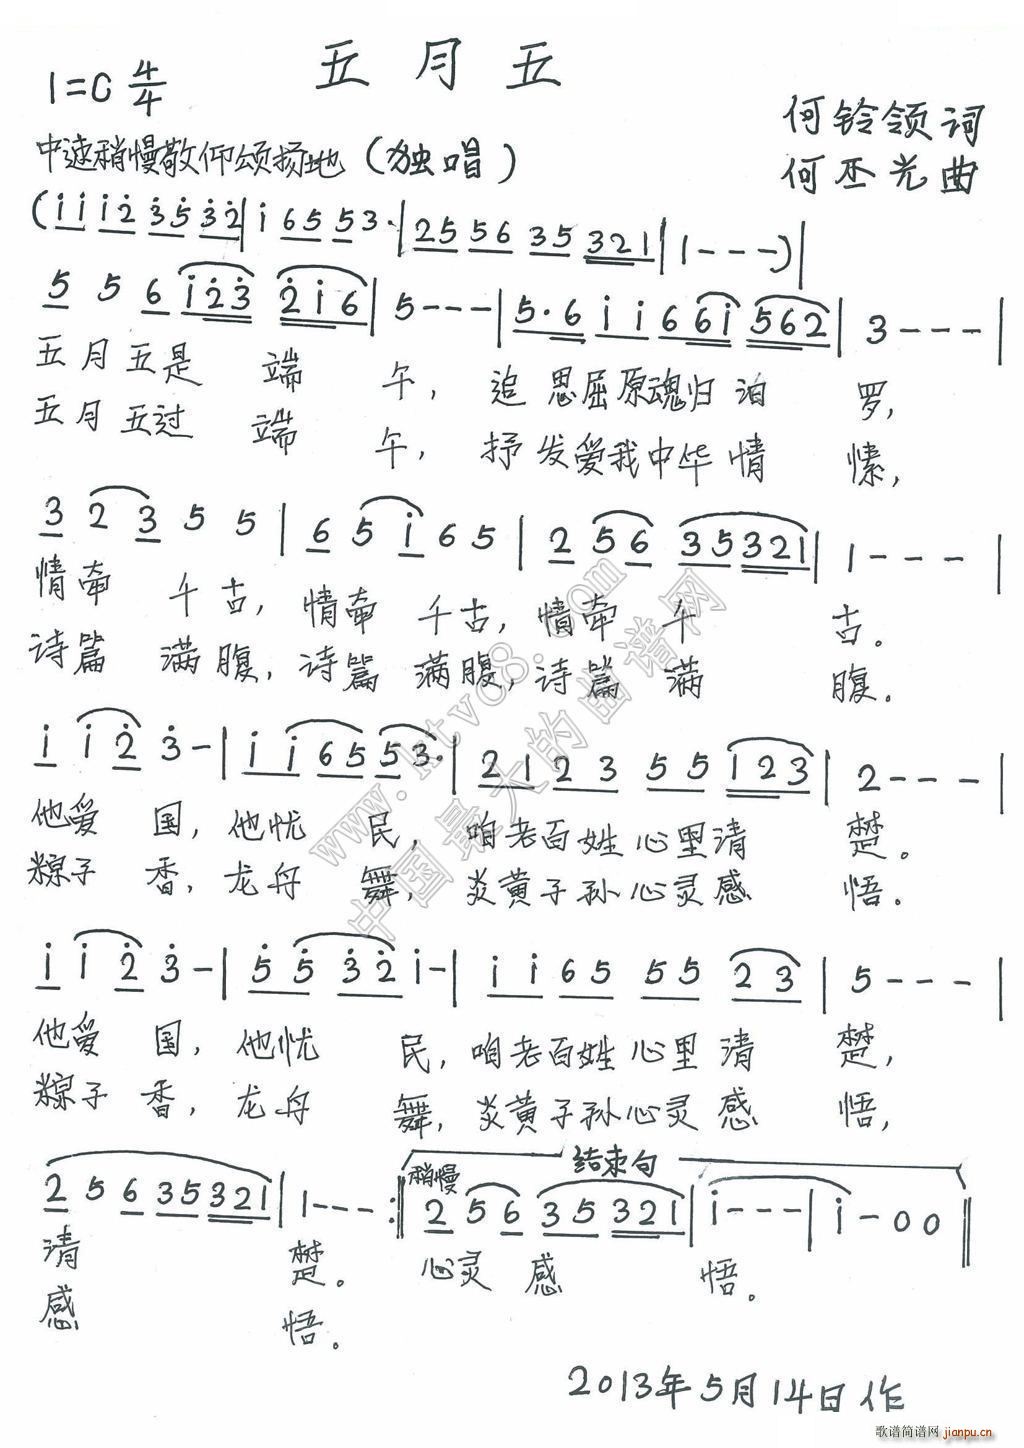 五月五
1=C 4/4
何铃领词
中速稍慢敬仰颂扬地(独唱)
何丕光曲
(i i i 2 3 5 3 2 | i 6 5 5 3· | 2 5 5 6 3 5 3 2 1 | 1 - - -) |
5 5 6 i 2 3 2 i 6 | 5 - - - | 5· 6 i i 6 6 i 5 6 2 | 3 - - - |
五月五是 端 午, 追思屈原魂归泊 罗,
五月五过 端 午, 抒发爱我中华情 愫,
3 2 3 5 5 | 6 5 i 6 5 | 2 5 6 3 5 3 2 1 | 1 - - - |
情牵 千古, 情牵 千古, 情牵 千 古。
诗篇 满腹, 诗篇 满腹, 诗篇 满 腹。
i i 2 3 - | i i 6 5 5 3· | 2 1 2 3 5 5 i 2 3 | 2 - - - |
他爱 国, 他忧 民, 咱老百姓心里清 楚。
粽子 香, 龙舟 舞, 炎黄子孙心灵感 悟。
i i 2 3 - | 5 5 3 2 i - | i i 6 5 5 5 2 3 | 5 - - - |
他爱 国, 他忧 民, 咱老百姓心里清 楚,
粽子 香, 龙舟 舞, 炎黄子孙心灵感 悟,
结束句
稍慢
2 5 6 3 5 3 2 1 | 1 - - - :‖ 2 5 6 3 5 3 2 1 | i - - - | i - 0 0 ‖
清 楚。 心灵 感 悟。
感 悟。
2013年5月14日作
www.ktv8.com
中国最大的曲谱网
歌谱简谱网
jianpu.cn